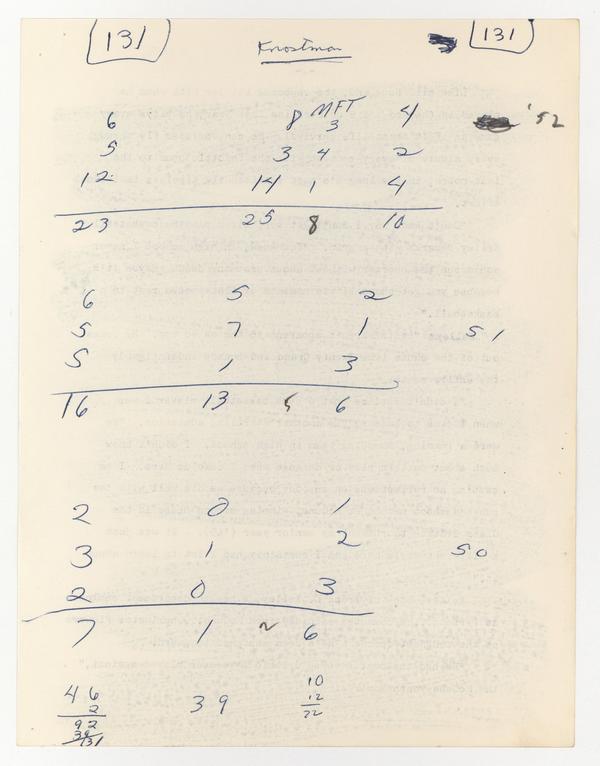 131 Knostman 131
MFT
6 8 3 4 '52
5 3 4 2
12 14 1 4
23 25 8 10
6 5 2
5 7 1 51
5 1 3
16 13 5 6
2 0 1
3 1 2 50
2 0 3
7 1 2 6
46 39 10
2 12
92 22
39
131